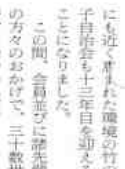 にも近く恵まれた環境の竹の
子自治会も十三年目を迎える
ことになりました。
この間、会員並びに諸先
の方々のおかげで、三十数世